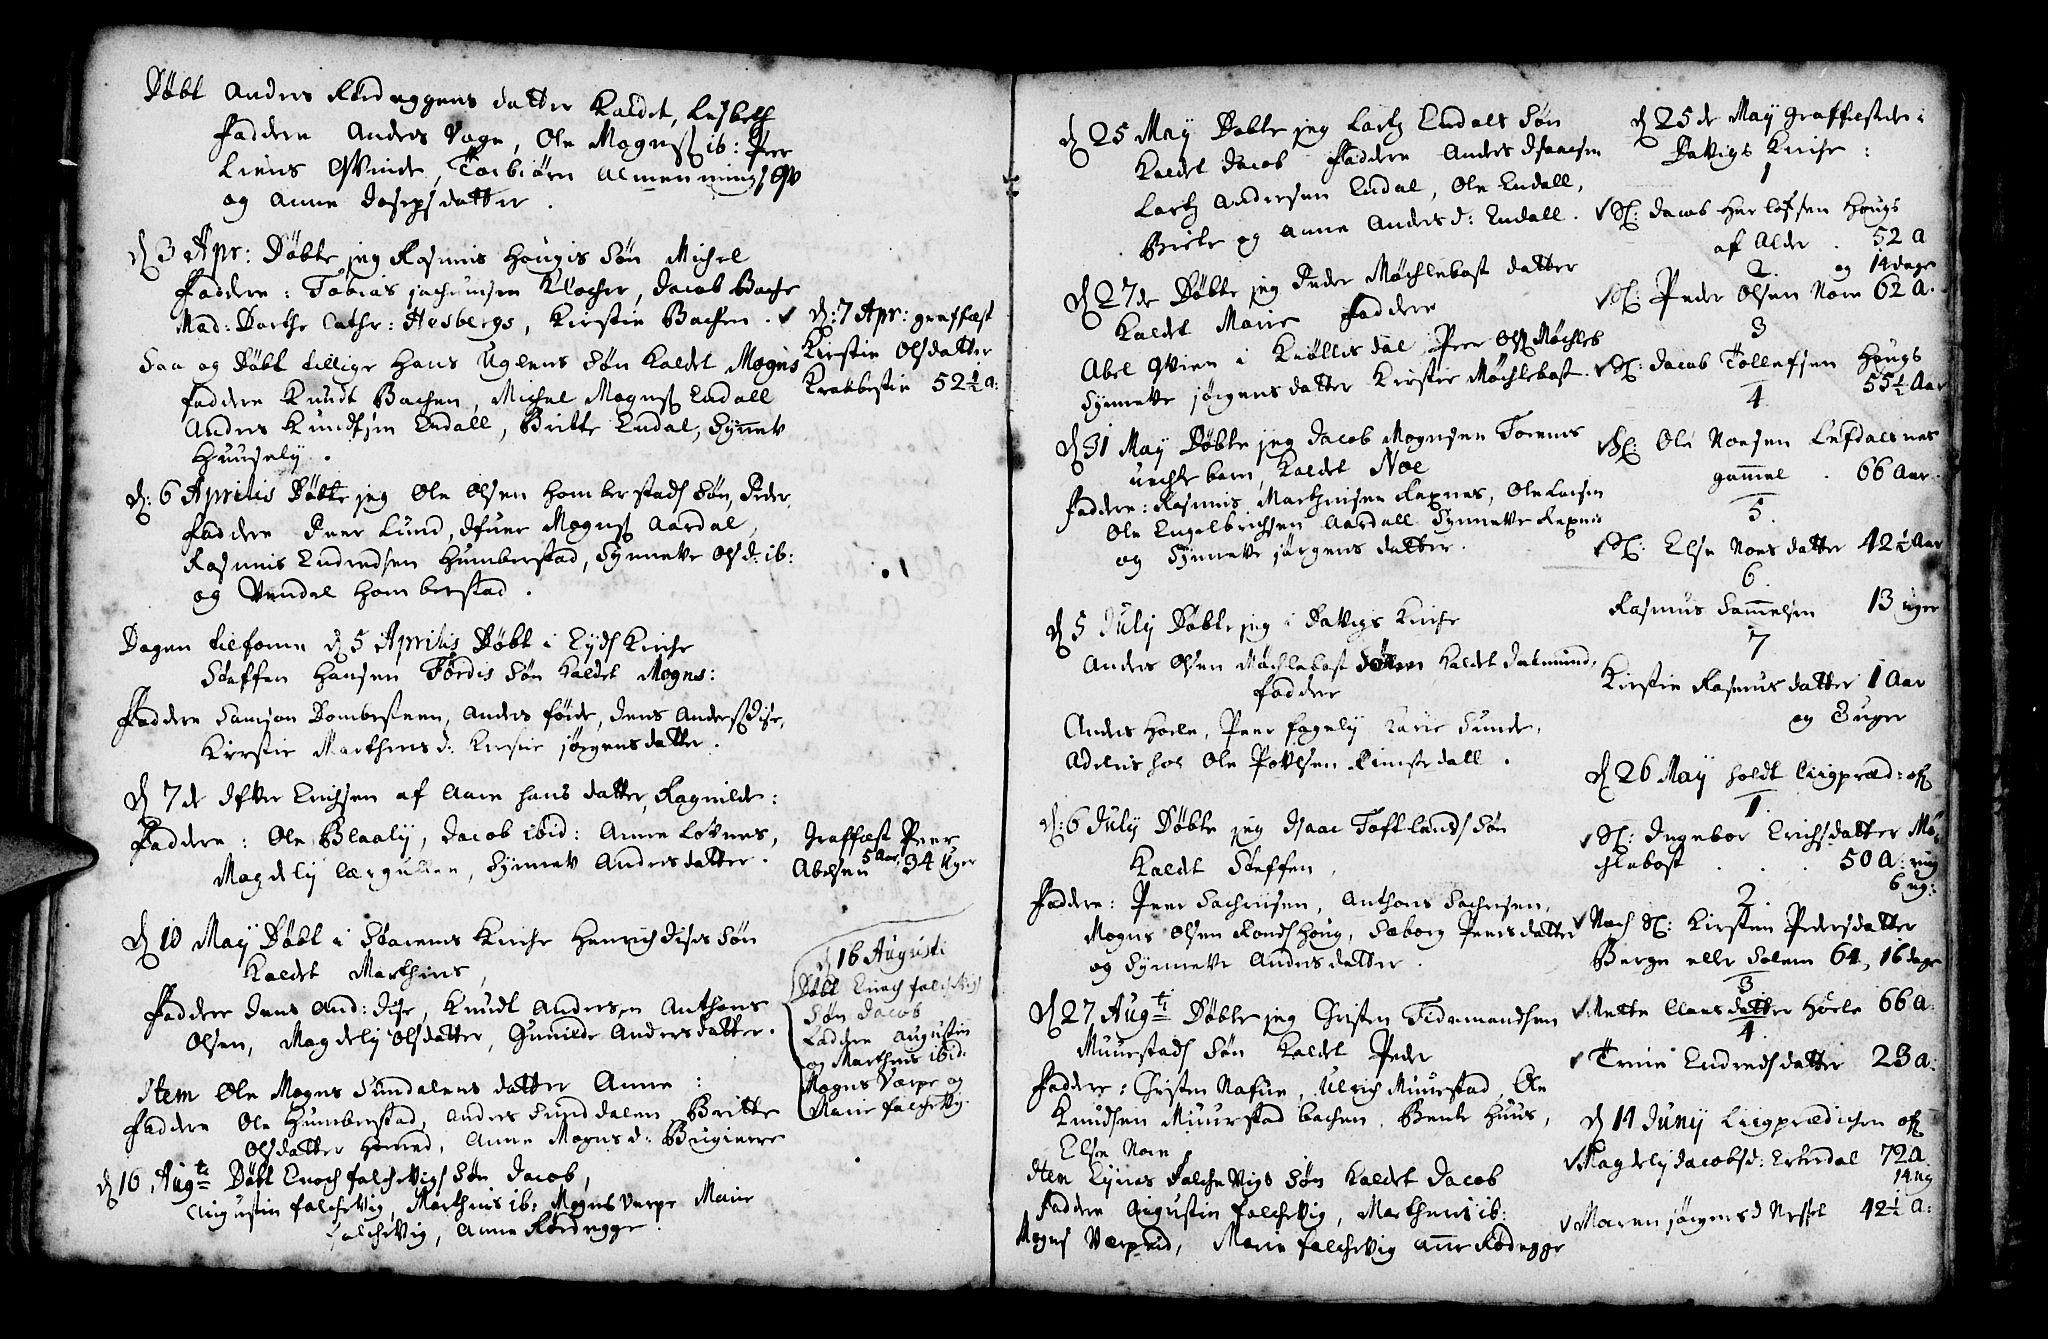 Døbt Anders Rødeggens datter Kaldet, Lisbeth
Faddere Anders Vage, Ole Mognss: ib: Peer
Liens Qvinde, Torbiørn Almennings Qv
og Anne Josepsdatter.
D 3 Apr: Døbte jeg Rasmus Hougis Søn Michel
Faddere: Tobias Jachumsen Klocher, Jacob Bache
Mad: Dorthe Cathr: Hesbergs, Kirstie Bachen.
Saa og Døbt tillige Hans Uglens Søn Kaldet Mogns
faddere Knudt Bachen, Michel Mognss Endall
Anders Knudtsen Endall, Britte Endal, Synnev
Huusely.
D: 6 Aprilis Døbte jeg Ole Olsen Homberstads Søn, Peder,
faddere Peer Lund, Ifuer Mognss Aardal,
Rasmus Endredsen Humberstad, Synneve Ols d: ib:
og Vendel Homberstad.
Dagen tilforne D 5 Aprilis Døbt i Eyds Kirche
Steffen Hansen Tørdis Søn Kaldet Mogns:
Faddere Samson Dombesteen, Anders føide, Jens Anderss Dise,
Kirstie Marthins d: Kirstie Jørgensdatter.
D 7 de Ifver Erichsen af Aarn hans datter, Ragnilde:
Faddere: Ole Blaaly, Jacob ibid: Anne Lotnes,
Magdely Lærgulen, Synnev Andersdatter.
D 10 May Døbt i Starens Kirche Henrich Dises Søn
Kaldet Marthins,
Faddere Jens And: Dise, Knudt Andersen Anthons
Olsen, Magdely Olsdatter, Gunilde Andersdatter.
Item Ole Mogns Sundalens datter Anne:
Faddere Ole Humberstad, Anders Sunddalen Britte
Olsdatter Homed, Anne Mogns d: Bugierre
D 16 Aug ti Døbt Enoch falchevigs Søn Jacob,
Augustin falchevig, Marthins ib: Mogns Varpe Marie
falchevig, Anne Rødegge.
D: 7 Apr: graffæst
Kirstin Olsdatter
Krakkestin 52 ½ a:
Graffæst Peer
Abelsen 5 Aar, 34 Uger
D 16 Augusti
Døbt Enoch falchevigs
Søn Jacob
Faddere Augustin
og Marthins ibid.
Mogns Varpe og
Marie falchevig.
D 25 May Døbte jeg Lartz Endals Søn
Kaldet Jacob Faddere Anders Isaacsen
Lartz Andersen Endal, Ole Endall,
Birte og Anne Anders d: Endall.
D 27 de Døbte jeg Peder Møchlebost datter
Kaldet Marie Faddere
Abel Qvien i Kiøllisdal Peer Olss Møchleb
Synneve Jørgensdatter Kirstie Møchlebost.
D 31 May Døbte jeg Jacob Mognsen Torenes
uechte barn, Kaldet Noe
faddere: Rasmus Marthinsen Raxnes, Ole Larsen
Ole Engelbrichtsen Aardall Synneve Raxnes
og Synneve Jørgensdatter.
D 5 July Døbte jeg i Davigs Kirche
Anders Olsen Møchlebost Sønn Kaldet Salmund,
faddere
Anders Hoele, Peer fagely Karie Sunde,
Adelus hol Ole Povlsen Rimstdall.
D: 6 July Døbte jeg Isaac Toftlands Søn
Kaldet Steffen,
Faddere: Peer Sachrisen, Anthons Sachrisen,
Mogns Olsen Rondshoug, Sæborg Peersdatter
og Synneve Andersdatter.
D 27 Aug ti Døbte jeg Christen Tidemandsen
Muurstads Søn Kaldet Peder
Faddere: Christen Nafue, Ulrich Muurstad, Ole
Knudsen Muurstad bachen, Bente Huus,
Else Nore
Item Eynes Falchevigs Søn Kaldet Jacob
Faddere Augustin falchevig, Marthins ib:
Mogns Varpeid, Marie falchevig Anne Rødegge
D 25 de May Graffæstede i
Davigs Kirche:
1
Sl: Jacob Herlofsen Hougs
af Alder. 52 a
og 14 dage
2
Sl: Peder Olsen Nore 62 a.
3
Sl: Jacob Tollefsen Hougs
55 ½ Aar
4
Sl: Ole Noesen Lefdalsnes
gammel. 66 Aar.
5
Sl: Else Noesdatter 42 ½ Aar
6
Rasmus Sammelsen 13 uger
7
Kirstin Rasmusdatter 1 Aar
og 3 uger
D 26 May holdt Liigpræd: ofr
1
Sl: Ingebor Erichsdatter Mø,
chlebost 50 A:
6 ug:
2
Noch Sl: Kirsten Pedersdatter
Berge eller Solem 64, 16 dage
3
Mette Clausdatter Hoele 66 a:
4
Trine Endredsdatter 23 a:
D 11 Juny Liigprædichen ofr
Magdely Jacobsd: Ertredal 72 a
14 ug
Maren Jørgensd Nessel 42 ½ a: